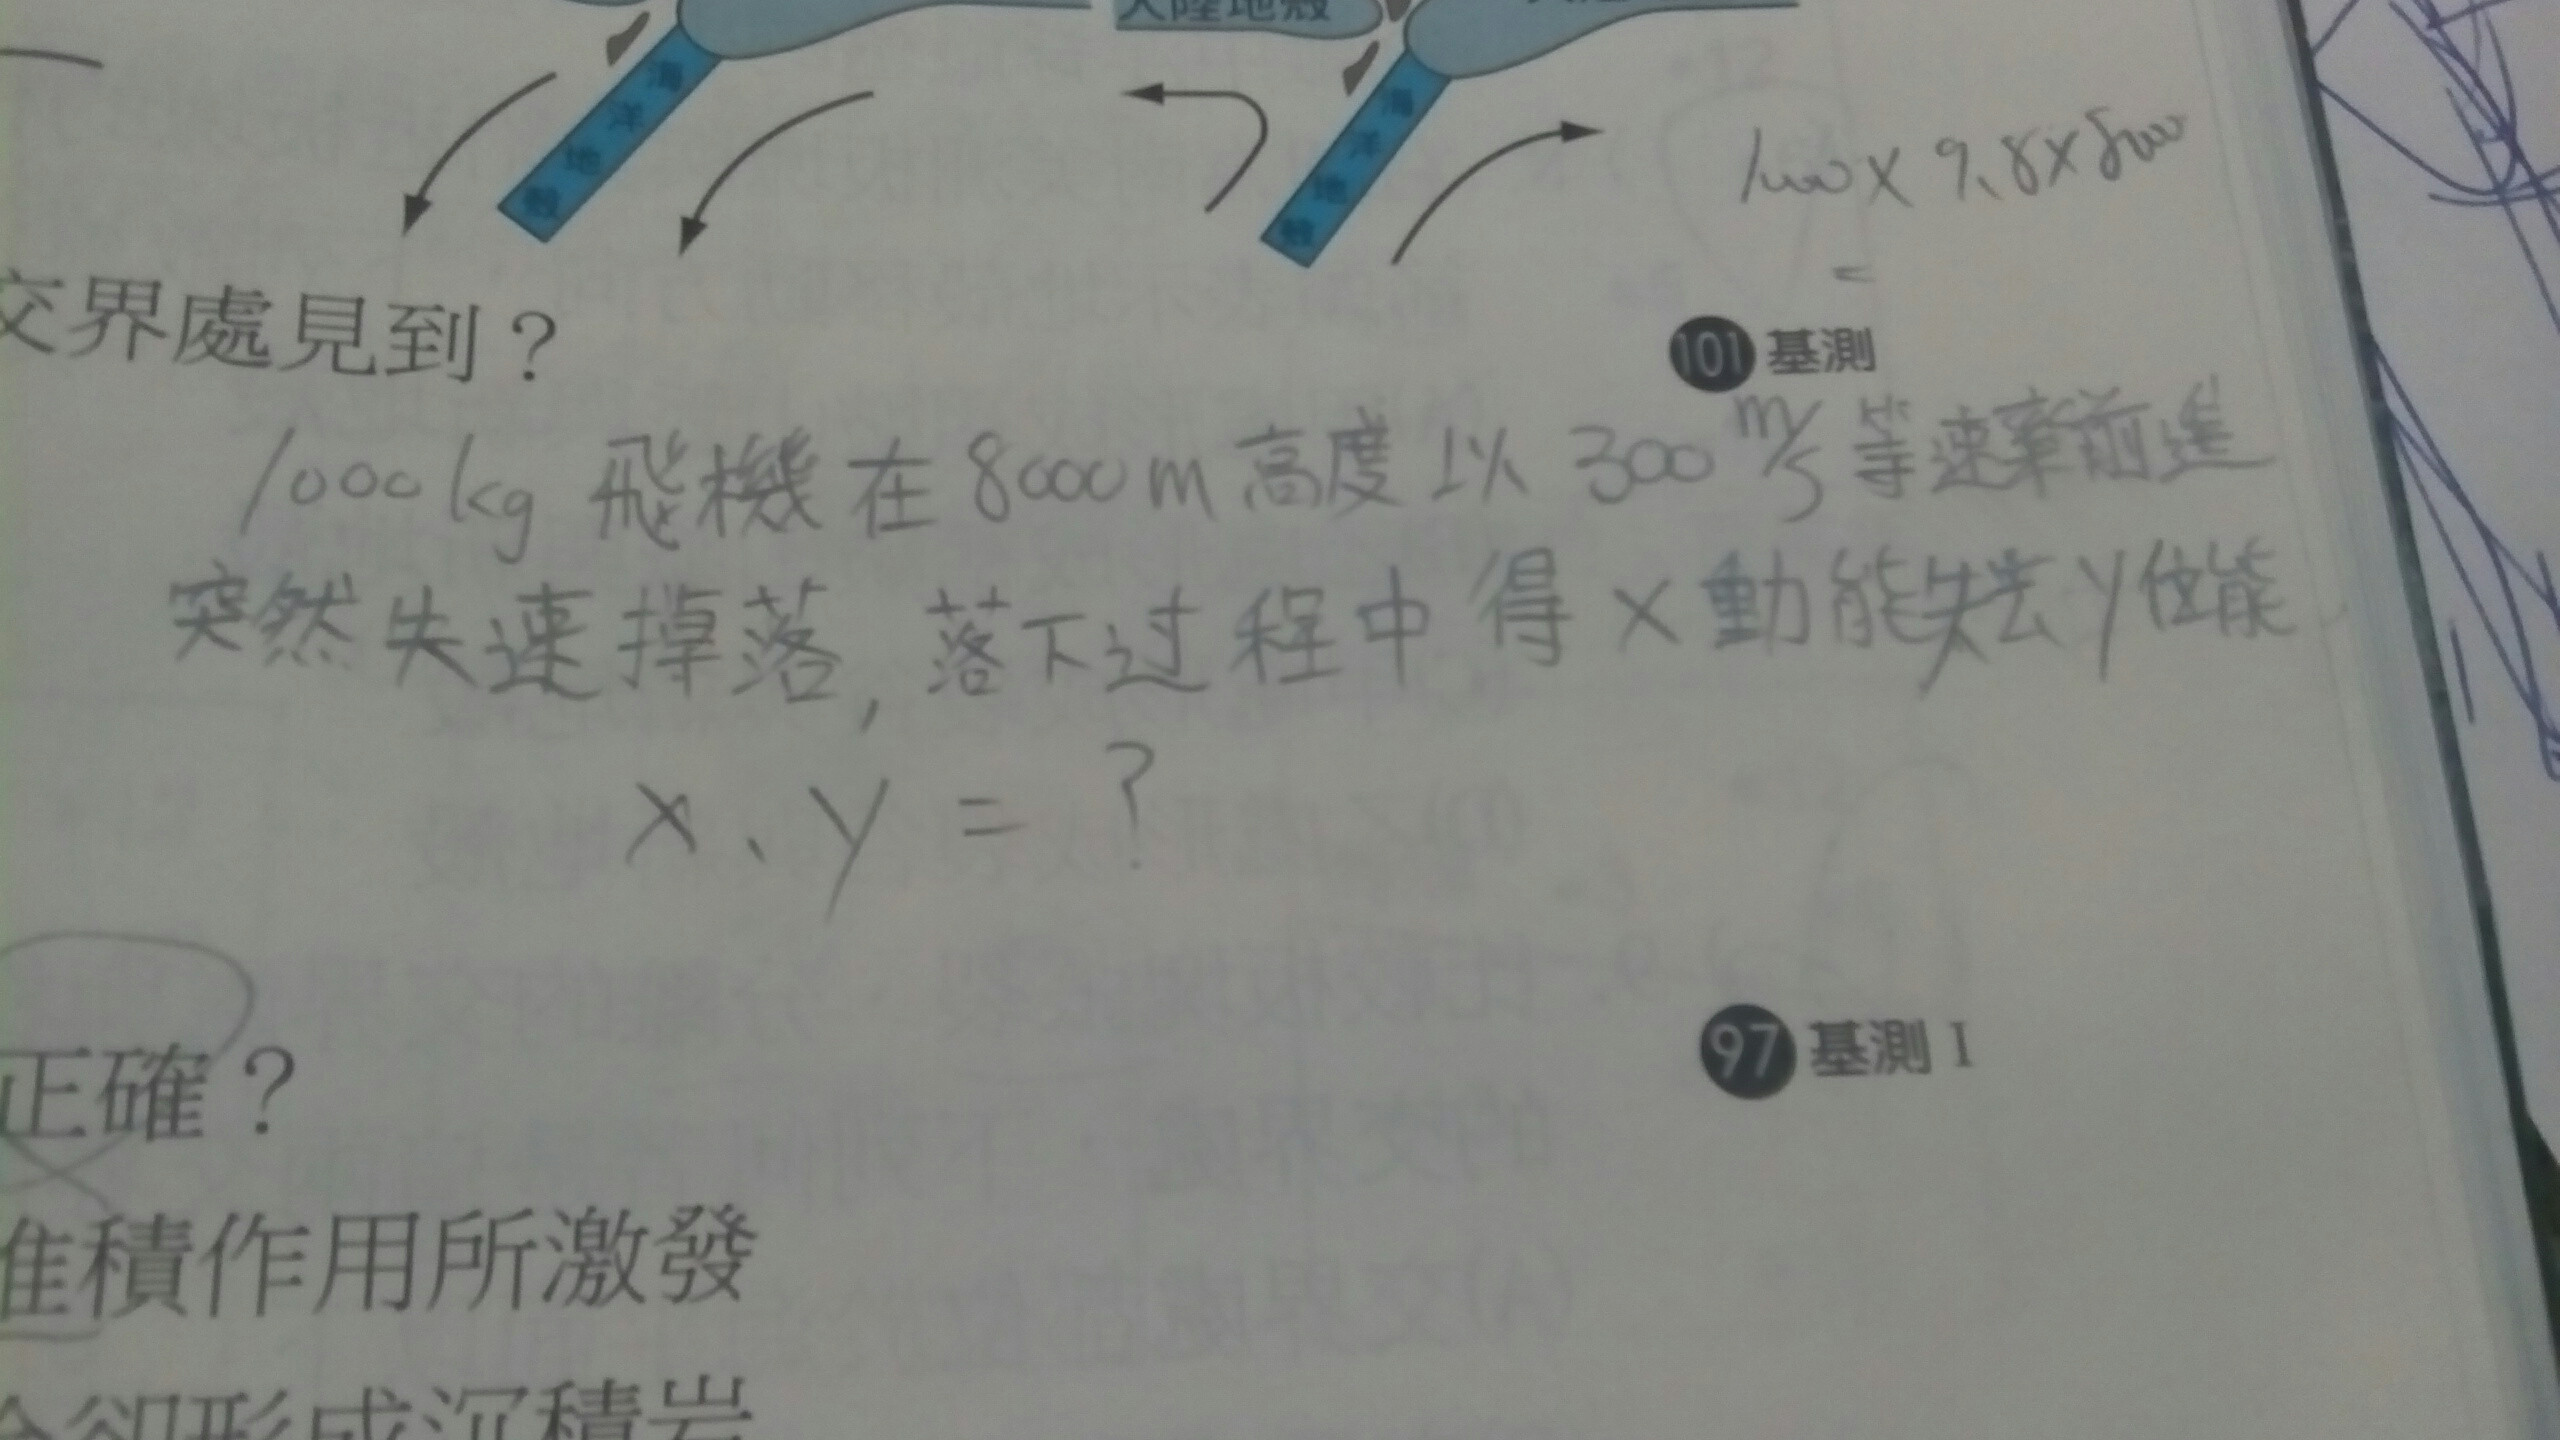 大陸地殼
海洋地殼
海洋地殼
1000 x 9.8 x 8000
=
交界處見到？
101 基測
1000kg 飛機在8000m高度以300m/s等速率前進
突然失速掉落, 落下过程中得 x 動能失去 y 位能
x、y = ?
正確？
97 基測 I
堆積作用所激發
冷卻形成沉積岩